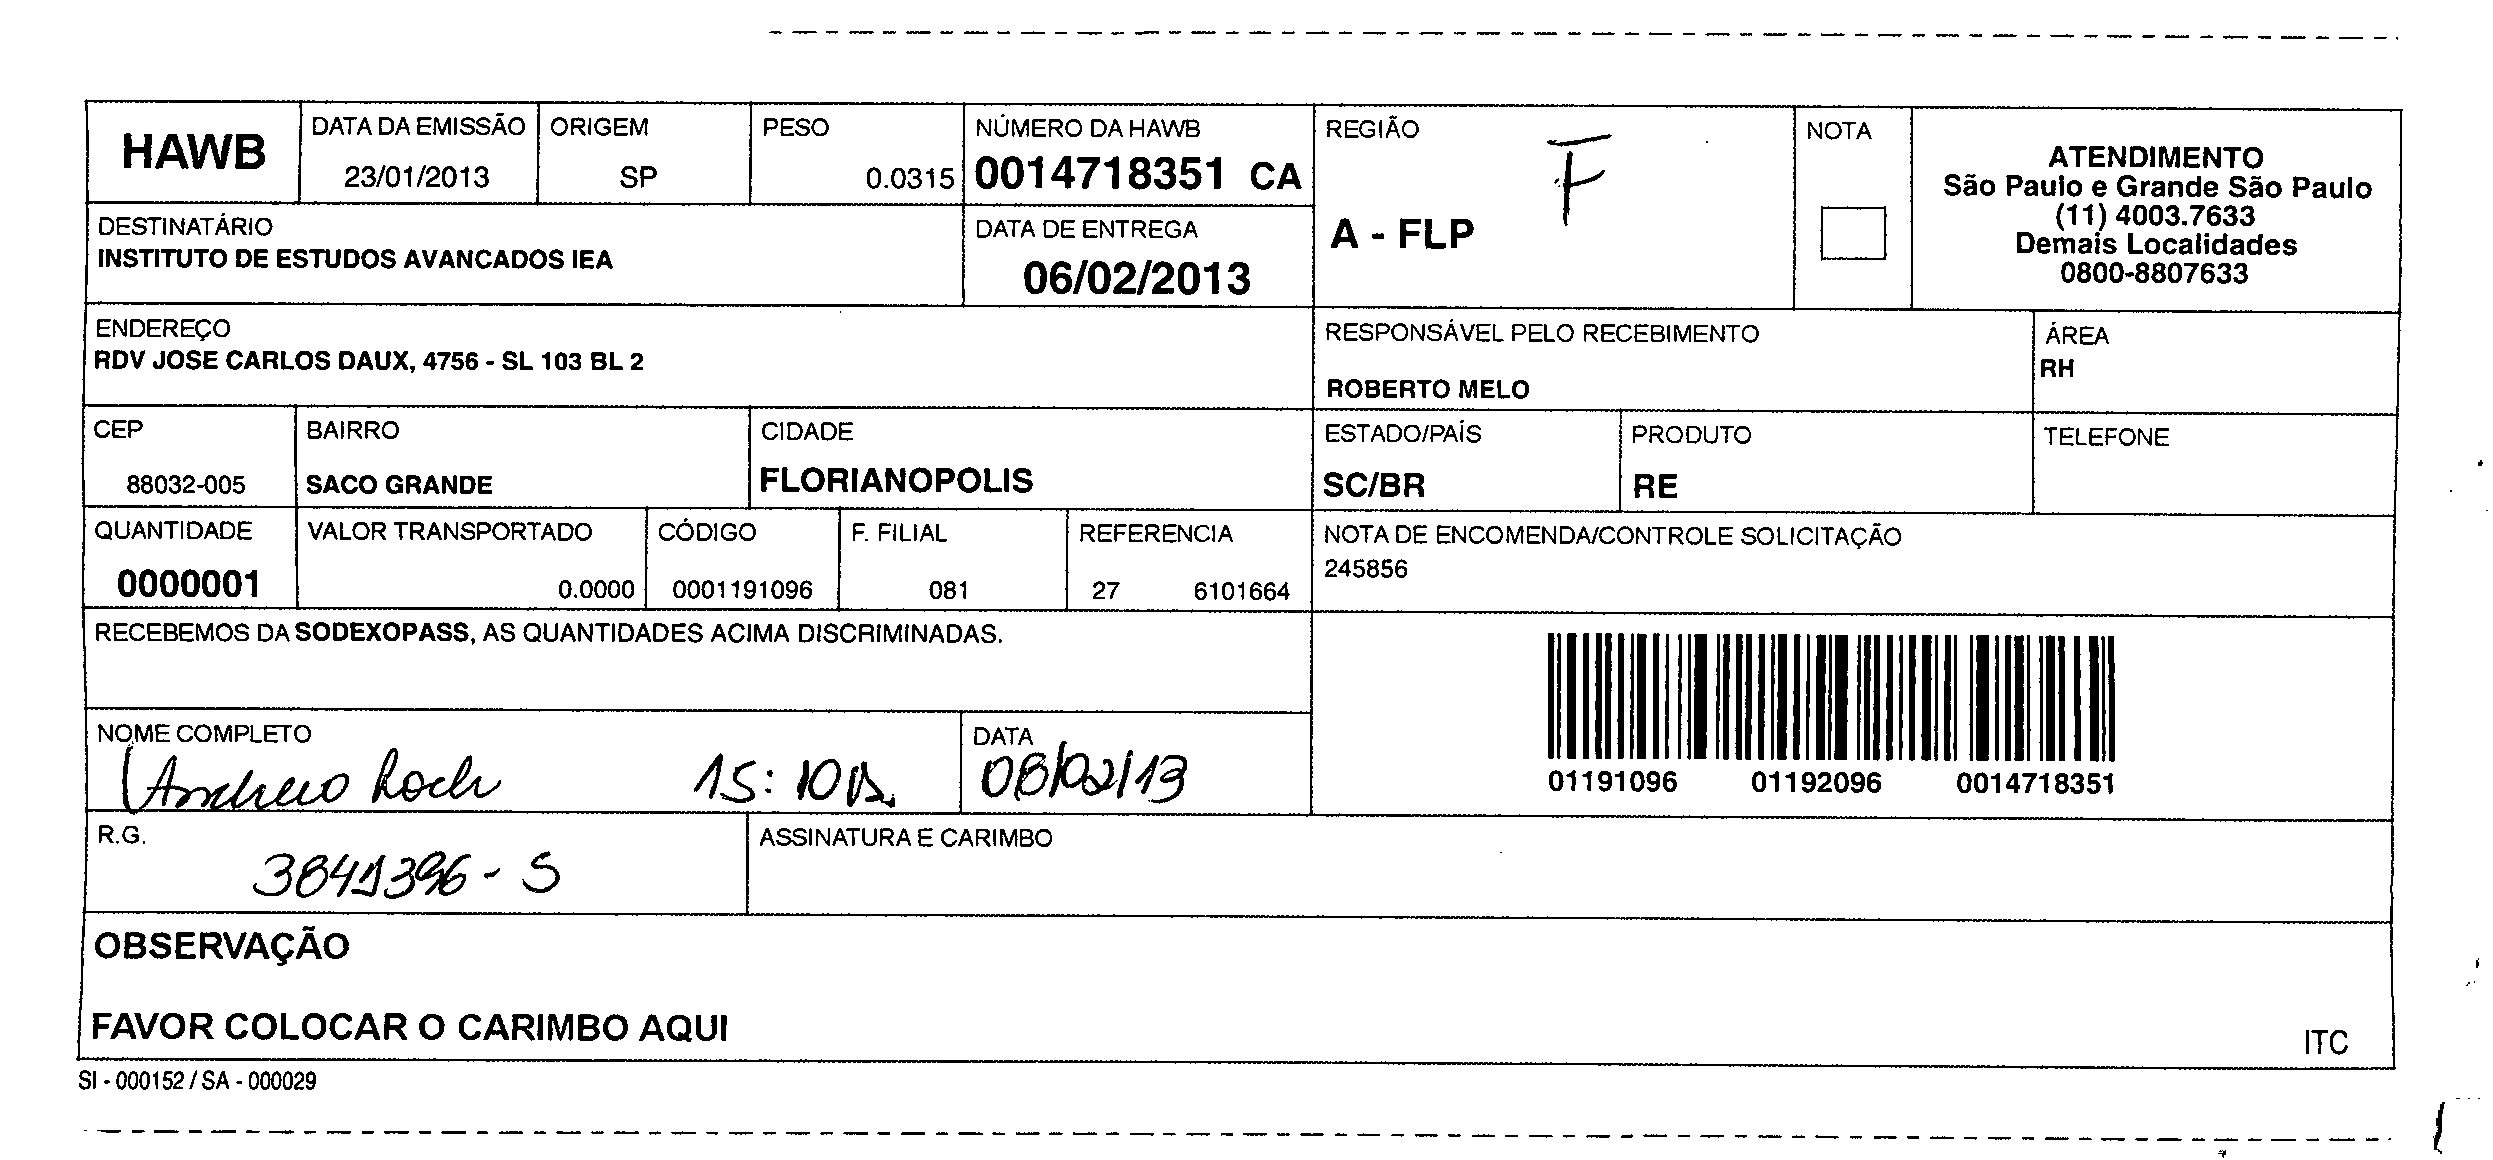 HAWB
DATA DA EMISSÃO
23/01/2013
ORIGEM
SP
PESO
0.0315
NÚMERO DA HAWB
0014718351 CA
REGIÃO
F
A - FLP
NOTA
ATENDIMENTO
São Paulo e Grande São Paulo
(11) 4003.7633
Demais Localidades
0800-8807633
DESTINATÁRIO
INSTITUTO DE ESTUDOS AVANCADOS IEA
DATA DE ENTREGA
06/02/2013
ENDEREÇO
RDV JOSE CARLOS DAUX, 4756 - SL 103 BL 2
RESPONSÁVEL PELO RECEBIMENTO
ROBERTO MELO
ÁREA
RH
CEP
88032-005
BAIRRO
SACO GRANDE
CIDADE
FLORIANOPOLIS
ESTADO/PAÍS
SC/BR
PRODUTO
RE
TELEFONE
QUANTIDADE
0000001
VALOR TRANSPORTADO
0.0000
CÓDIGO
0001191096
F. FILIAL
081
REFERENCIA
27 6101664
NOTA DE ENCOMENDA/CONTROLE SOLICITAÇÃO
245856
RECEBEMOS DA SODEXOPASS, AS QUANTIDADES ACIMA DISCRIMINADAS.
01191096 01192096 0014718351
NOME COMPLETO
15:10
DATA
R.G.
ASSINATURA E CARIMBO
OBSERVAÇÃO
FAVOR COLOCAR O CARIMBO AQUI
ITC
SI - 000152 / SA - 000029